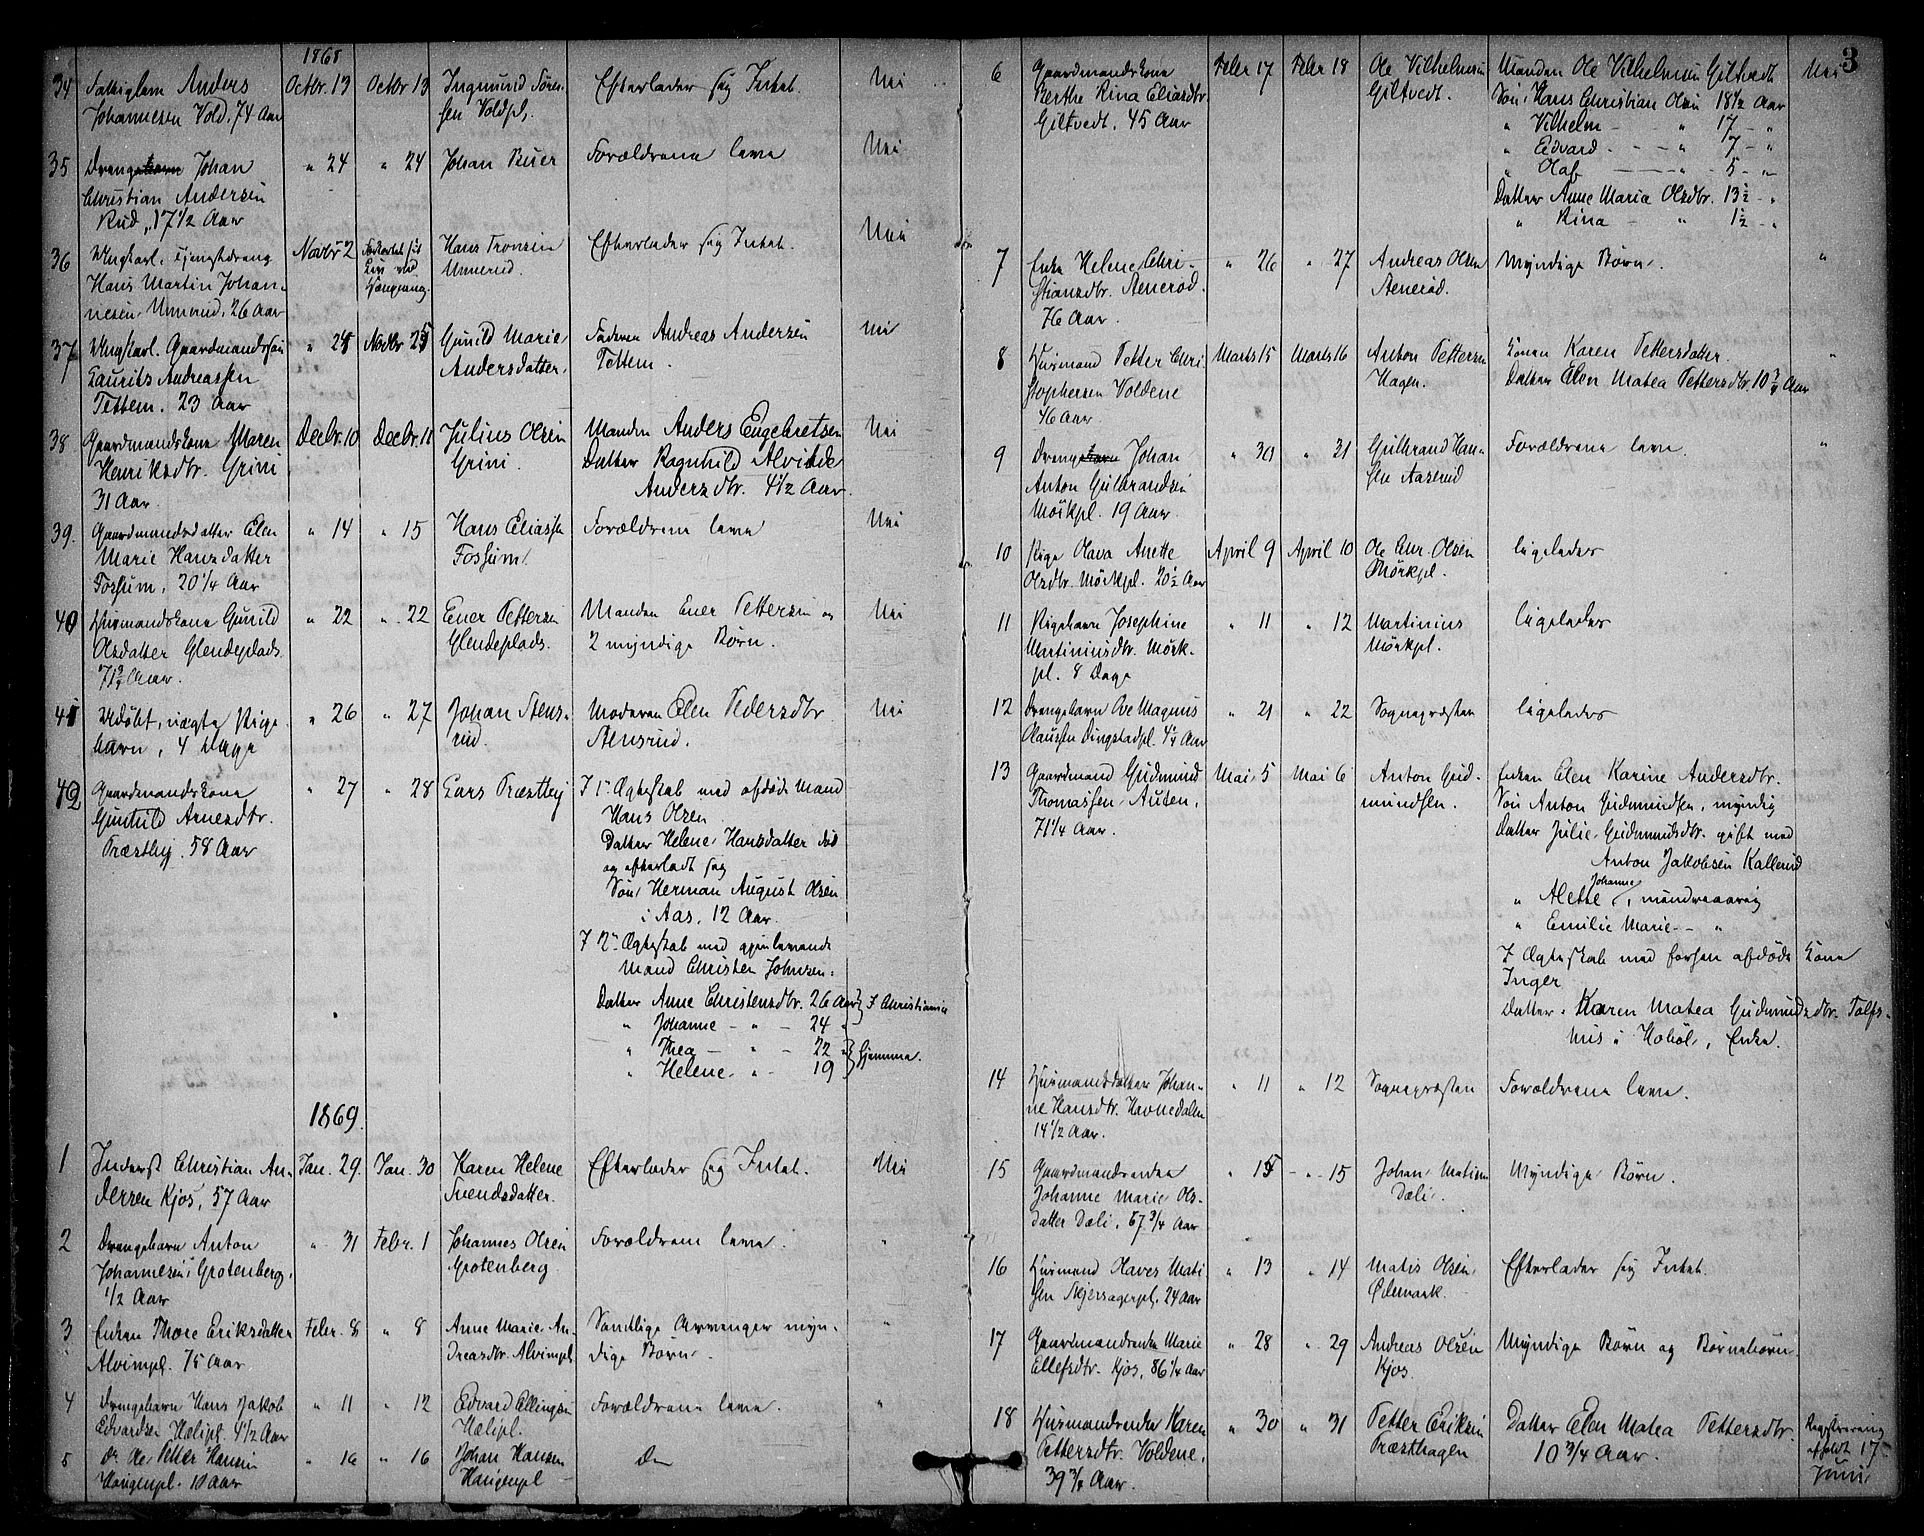 3
1868
34 Fattiglem Anders Octbr. 13 Octbr 13 Ingmund Sören- Efterlader sig Intet. Nei
Johannesen Vold. 74 Aar sen Voldpl.
35 Dreng Johan " 24 " 24 Johan Buer Forældrene leve Nei
Christian Andersen
Rud, 17 1/2 Aar
36 Ungkarl. Tjenestdreng Novbr 2 Hans Tronsen Efterlader sig Intet. Nei
Hans Martin Johan-
nesen Unnerud. 26 Aar
37 Ungkarl. Gaardmandssön " 24 Novbr 25 Gunild Marie Faderen Andreas Andersen Nei
Laurits Andreassen Andersdatter. Tettem.
Tettem. 23 Aar
38 Gaardmandskone Maren Decbr. 10 Decbr. 11 Julius Olsen Manden Anders Engebretsen Nei
Henriksdtr. Grini Grini. Datter Ragnhild Alvilde
31 Aar. Andersdtr. 4 1/2 Aar.
39. Gaardmandsdatter Elen " 14 " 15 Hans Eliassen Forældrene leve Nei
Marie Hansdatter Fossum.
Fossum. 20 1/4 Aar
40 Husmandskone Gunild " 22 " 22 Ener Pettersen Manden Ener Pettersen og Nei
Olsdatter Glendeplads. Glendeplads. 2 myndige Börn.
71 3/4 Aar.
41 Udöbt, uægte Pige- " 26 " 27 Johan Stens- Moderen Elen Pedersdtr Nei
barn, 4 Dage rud. Stensrud.
42 Gaardmandskone " 27 " 28 Lars Præsthej I 1. Ægteskab med afdöde Mand
Gunhild Arnesdtr. Hans Olsen
Præsthej. 58 Aar Datter Helene Hansdatter död
og efterladt sig
Sön Herman August Olsen
i Aas. 12 Aar.
I 2. Ægteskab med gjenlevende
Mand Christen Johnsen:
Datter Anne Christensdtr. 26 Aar } I Christiania
" Johanne - " - 24 "
" Thea - " - 22 " } Hjemme.
" Helene - " - 19
1869.
1 Inderst Christian An- Jan. 29. Jan. 30 Karen Helene Efterlader sig Intet. Nei
dersen Kjos, 57 Aar Svendsdatter.
2 Drengebarn Anton " 31 Febr. 1 Johannes Olsen Forældrene leve. "
Johannesen Grotenberg. Grotenberg
1/2 Aar
3 Enken Thore Eriksdatter Febr. 8 " 8 Anne Marie An- Samtlige Arvinger myn- "
Alvimpl. 75 Aar dreasdtr. Alvimpl dige Börn.
4 Drengebarn Hans Jakob " 11 " 12 Edvard Ellingsen Forældrene leve. "
Edvardsen Hælipl. 4 1/2 Aar Hælipl.
5 Do Ole Petter Hansen " 16 " 16 Johan Hansen Do
Haugenpl. 10 Aar Haugenpl
6 Gaardmandskone Febr 17 Febr 18 Ole Vilhelmsen Manden Ole Vilhelmsen Giltvedt Nei
Berthe Rina Eliasdtr. Giltvedt. Sön Hans Christian Olsen 18 1/2 Aar
Giltvedt. 45 Aar " Vilhelm - " 17 - "
" Edvard - " 7 - "
" Olaf - " 5 - "
Datter Anne Maria Olsdtr. 13 1/2 - "
" Rina - " 1 1/2 - "
7 Enke Helene Chri- " 26 " 27 Andreas Olsen Myndige Börn. "
stiansdtr. Stenerød. Stenerød.
76 Aar.
8 Husmand Petter Chri- Marts 15 Marts 16 Anton Pettersen Konen Karen Pettersdatter. "
stophersen Voldene Hagen. Datter Elen Matea Pettersdtr. 10 3/4 Aar
46 Aar.
9 Dreng Johan " 30 " 31 Gulbrand Han- Forældrene leve. "
Anton Gulbrandsen sen Aaserud
Mörkpl. 19 Aar.
10 Pige Olava Anette April 9 April 10 Ole Chr. Olsen ligeledes
Olsdtr. Mörkpl. 20 1/2 Aar Mörkpl.
11 Pigebarn Josephine " 11 " 12 Martinius ligeledes
Martiniusdtr. Mörk- Mörkpl.
pl. 8 Dage
12 Drengebarn Ove Magnus " 21 " 22 Sognepræsten ligeledes
Claussen Dingstadpl. 4 1/4 Aar
13 Gaardmand Gudmund Mai 5 Mai 6 Anton Gud- Enken Elen Karine Andersdtr.
Thomassen Auten. mundsen. Sön Anton Gudmundsen, myndig
71 1/4 Aar. Datter Julie Gudmundsdtr. gift med
Anton Jakobsen Kallerud
" Alette Johanne, mindreaarig
" Emilie Marie - "
I Ægteskab med forhen afdöde Kone
Inger
Datter Karen Matea Gudmundsdtr. Tolfs-
hus i Hobøl, Enke.
14 Husmandsdatter Johan- " 11 " 12 Sognepræsten Forældrene leve.
ne Hansdtr. Havnedalen
14 1/2 Aar.
15 Gaardmandsenke " 15 " 15 Johan Matisen Myndige Börn.
Johanne Marie Ols- Dæli.
datter Dæli. 67 3/4 Aar
16 Husmand Olaves Mati- " 13 " 14 Matis Olsen Efterlader sig Intet.
sen Skjersagerpl. 24 Aar Ödemark.
17 Gaardmandsenke Marie " 28 " 29 Andreas Olsen Myndige Börn og Börnebörn.
Ellefsdtr. Kjos, 86 1/4 Aar Kjos.
18 Husmandsenke Karen " 30 " 31 Petter Eriksen Datter Elen Matea Pettersdtr. Registrering
Pettersdtr. Voldene. Præsthagen 10 3/4 Aar. afholdt 17
39 3/4 Aar. Juni.